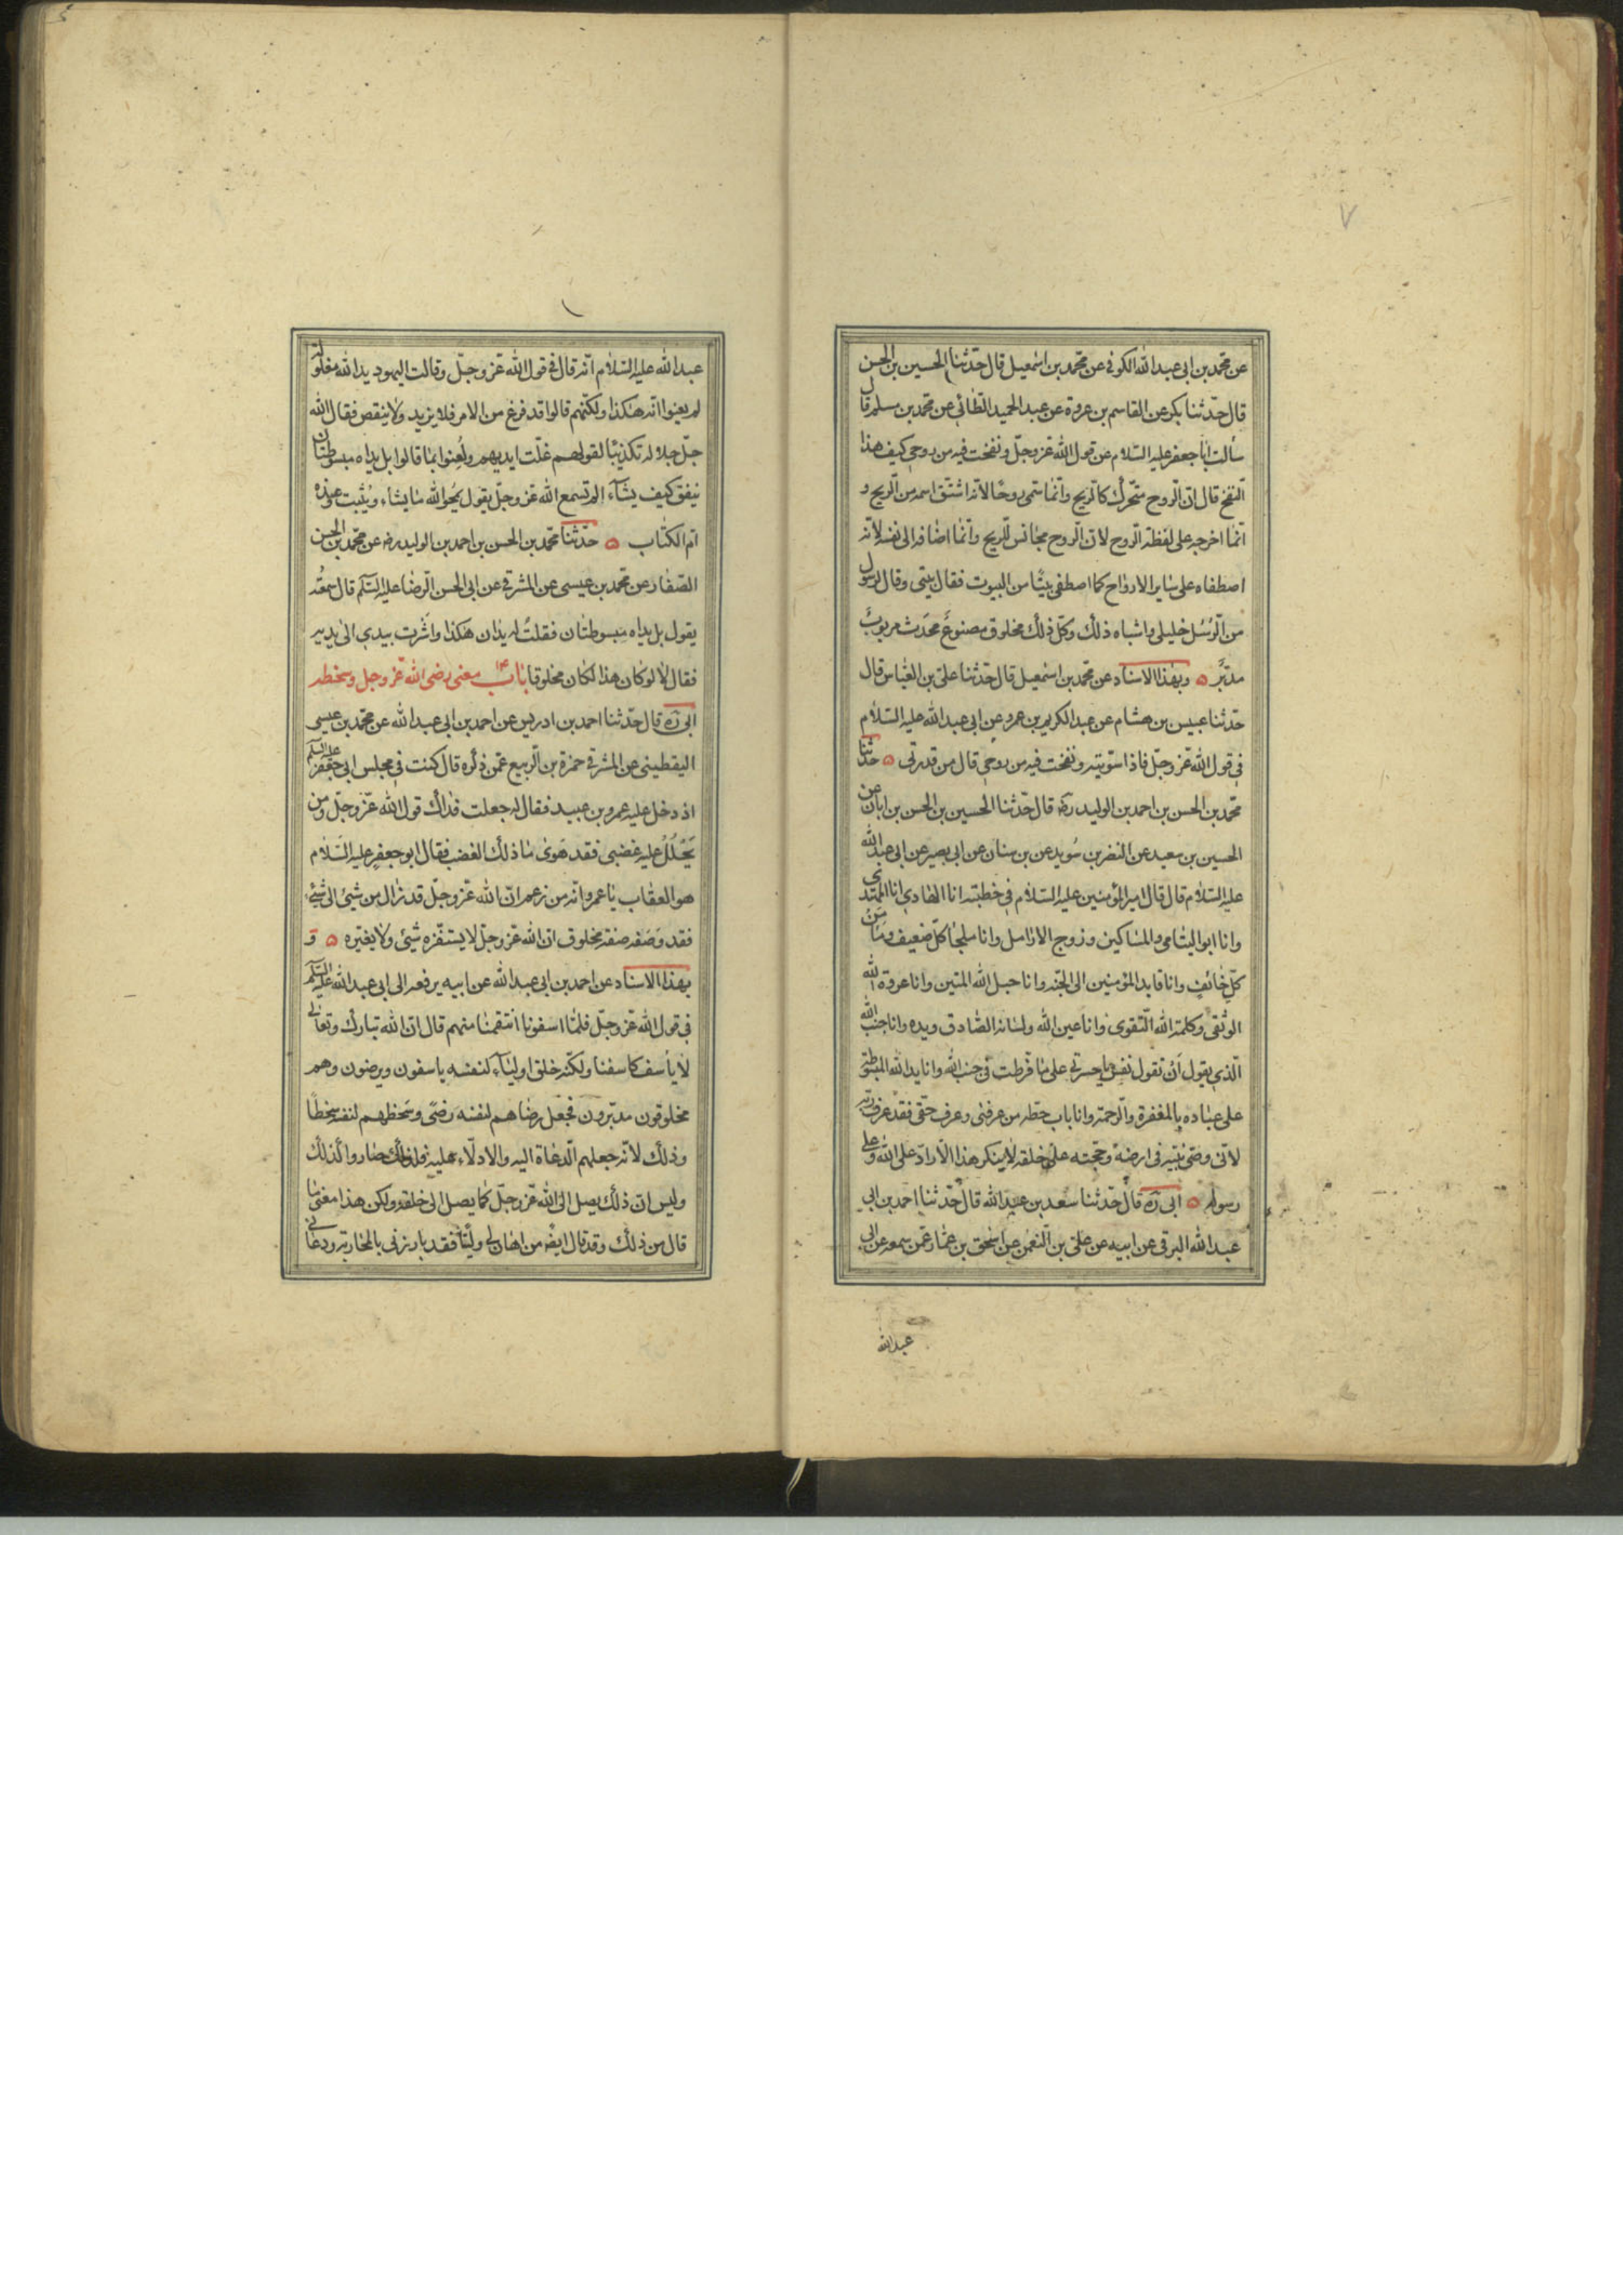 ٧
عن محمد بن ابى عبد الله الكوفى عن محمد بن اسمعيل قال حدّثنا الحسين بن الحسن
قال حدّثنا بكر عن القاسم بن عروة عن عبد الحميد الطائى عن محمد بن مسلم قال
سألت ابا جعفر عليه السّلام عن قول الله عزّ وجلّ ونفخت فيه من روحى كيف هذا
النّفخ قال انّ الرّوح متحرّك كالرّيح وانّما سمّى روحًا لانّه اشتقّ اسمه من الرّيح و
انّما اخرجه على لفظة الرّوح لانّ الرّوح مجانس للرّيح وانّما اضافه الى نفسه لانّه
اصطفاه على ساير الارواح كما اصطفى بيتًا من البيوت فقال بيتى وقال لرسول
من الرّسل خليلى واشباه ذلك وكلّ ذلك مخلوق مصنوع محدث مربوب
مدبّر ۵ وبهذا الاسناد عن محمد بن اسمعيل قال حدّثنا علىّ بن العبّاس قال
حدّثنا عبيس بن هشام عن عبد الكريم بن عمرو عن ابى عبد الله عليه السّلام
فى قول الله عزّ وجلّ فاذا سوّيته ونفخت فيه من روحى قال من قدرتى ۵ حدّثنا
محمد بن الحسن بن احمد بن الوليد ره قال حدّثنا الحسين بن الحسن بن ابان عن
الحسين بن سعيد عن النضر بن سُويد عن بن سنان عن ابى بصير عن ابى عبد الله
عليه السّلام قال قال امير المؤمنين عليه السّلام فى خطبته انا الهادى انا المهتدى
وانا ابو اليتامى والمساكين وزوج الارامل وانا ملجأ كلّ ضعيف ومأمن
كلّ خائف وانا قايد المؤمنين الى الجنّة وانا حبل الله المتين وانا عروة الله
الوثقى وكلمة الله التّقوى وانا عين الله ولسانه الصّادق ويده وانا جنب الله
الّذى يقول اَن تقول نفس يا حسرتى على ما فرّطت فى جنب الله وانا يد الله المبسوطة
على عباده بالمغفرة والرّحمة وانا باب حطّة من عرفنى وعرف حقّى فقد عرف ربّه
لانّى وصىّ نبيّه فى ارضه وحجّته على خلقه لا ينكر هذا الّا رادّ على الله وعلى
رسوله ۵ ابى ره قال حدّثنا سعد بن عبد الله قال حدّثنا احمد بن ابى
عبد الله البرقى عن ابيه عن علىّ بن النّعمن عن اسحق بن عمّار عمّن سمعه عن ابى
عبد الله
عبد الله عليه السّلام انّه قال فى قول الله عزّ وجلّ وقالت اليهود يد الله مغلولة
لم يعنوا انّه هكذا ولكنّهم قالوا قد فرغ من الامر فلا يزيد ولا ينقص فقال الله
جلّ جلاله تكذيبًا لقولهم غلّت ايديهم ولُعِنوا بما قالوا بل يداه مبسوطتان
ينفق كيف يشآء الم تسمع الله عزّ وجلّ يقول يمحوا الله ما يشاء ويُثبت وعنده
امّ الكتاب ۵ حدّثنا محمد بن الحسن بن احمد بن الوليد ره عن محمد بن الحسن
الصّفار عن محمد بن عيسى عن المشرقى عن ابى الحسن الرّضا عليه السّلم قال سمعتُه
يقول بل يداه مبسوطتان فقلتُ له يدان هكذا واشرت بيدى الى يديه
فقال لا لو كان هذا لكان مخلوقا باب معنى رضى الله عزّ وجل وسخطه
ابى ره قال حدّثنا احمد بن ادريس عن احمد بن ابى عبد الله عن محمد بن عيسى
اليقطينى عن المشرقى حمزة بن الرّبيع عمّن ذكره قال كنت فى مجلس ابى جعفر عليه السّلم
اذ دخل عليه عمرو بن عبيد فقال له جعلت فداك قول الله عزّ وجلّ ومن
يَحْلُلْ عليه غضبى فقد هَوى ما ذلك الغضب فقال ابو جعفر عليه السّلام
هو العقاب يا عمرو انّه من زعم انّ الله عزّ وجلّ قد زال من شىء الى شىء
فقد وصفه صفة مخلوق انّ الله عزّ وجلّ لا يستفزّه شىء ولا يغيّره ۵ و
بهذا الاسناد عن احمد بن ابى عبد الله عن ابيه يرفعه الى ابى عبد الله عليه السّلم
فى قول الله عزّ وجلّ فلمّا اسفونا انتقمنا منهم قال ان الله تبارك وتعالى
لا يأسف كاسفنا ولكنّه خلق اوليآء لنفسه ياسفون ويرضون وهم
مخلوقون مدبّرون فجعل رضاهم لنفسه رضًى وسَخطهم لنفسه سخطًا
وذلك لانّه جعلهم الدّعاة اليه والادلّاء عليه فلذلك صاروا كذلك
وليس انّ ذلك يصل الى الله عزّ وجلّ كما يصل الى خلقه ولكن هذا معنى ما
قال من ذلك وقد قال ايضًه من اهان لى وليًّا فقد بارزنى بالمحاربة ودعانى